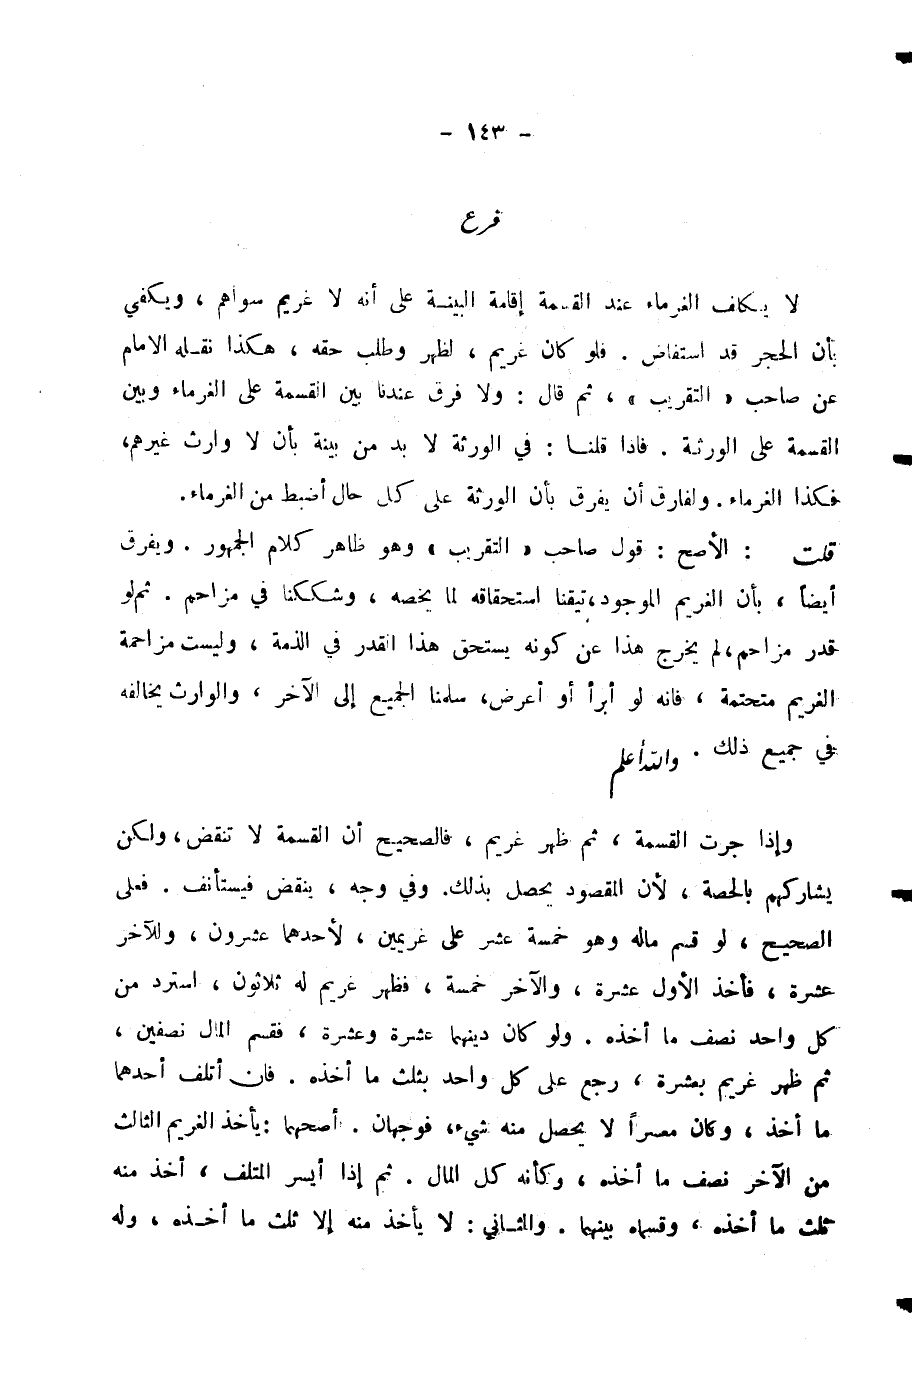 - ١٤٣ -
فرع
لا يكلف الغرماء عند القسمة إقامة البينة على أنه لا غريم سواهم ، ويكفي
بأن الحجر قد استفاض . فلو كان غريم ، لظهر وطلب حقه ، هكذا نقله الامام
عن صاحب « التقريب » ، ثم قال : ولا فرق عندنا بين القسمة على الغرماء وبين
القسمة على الورثة . فاذا قلنا : في الورثة لا بد من بينة بأن لا وارث غيرهم،
فكذا الغرماء . ولفارق أن يفرق بأن الورثة على كل حال أضبط من الغرماء .
قلت : الأصح : قول صاحب « التقريب » وهو ظاهر كلام الجمهور . ويفرق
أيضاً ، بأن الغريم الموجود،تيقنا استحقاقه لما يخصه ، وشككنا في مزاحم . ثم لو
قدر مزاحم،لم يخرج هذا عن كونه يستحق هذا القدر في الذمة ، وليست مزاحمة
الغريم متحتمة ، فانه لو أبرأ أو أعرض، سلمنا الجميع إلى الآخر ، والوارث يخالفه
في جميع ذلك . والله أعلم
وإذا جرت القسمة ، ثم ظهر غريم ، فالصحيح أن القسمة لا تنقض ، ولكن
يشاركهم بالحصة ، لأن المقصود يحصل بذلك. وفي وجه ، ينقض فيستأنف . فعلى
الصحيح ، لو قسم ماله وهو خمسة عشر على غريمين ، لأحدهما عشرون ، وللآخر
عشرة ، فأخذ الأول عشرة ، والآخر خمسة ، فظهر غريم له ثلاثون ، استرد من
كل واحد نصف ما أخذه . ولو كان دينهما عشرة وعشرة ، فقسم المال نصفين ،
ثم ظهر غريم بعشرة ، رجع على كل واحد بثلث ما أخذه . فان أتلف أحدهما
ما أخذ ، وكان معسراً لا يحصل منه شيء، فوجهان . أصحهما : يأخذ الغريم الثالث
من الآخر نصف ما أخذه ، وكأنه كل المال . ثم إذا أيسر المتلف ، أخذ منه
ثلث ما أخذه ، وقسماه بينهما . والثاني : لا يأخذ منه إلا ثلث ما أخذه ، وله